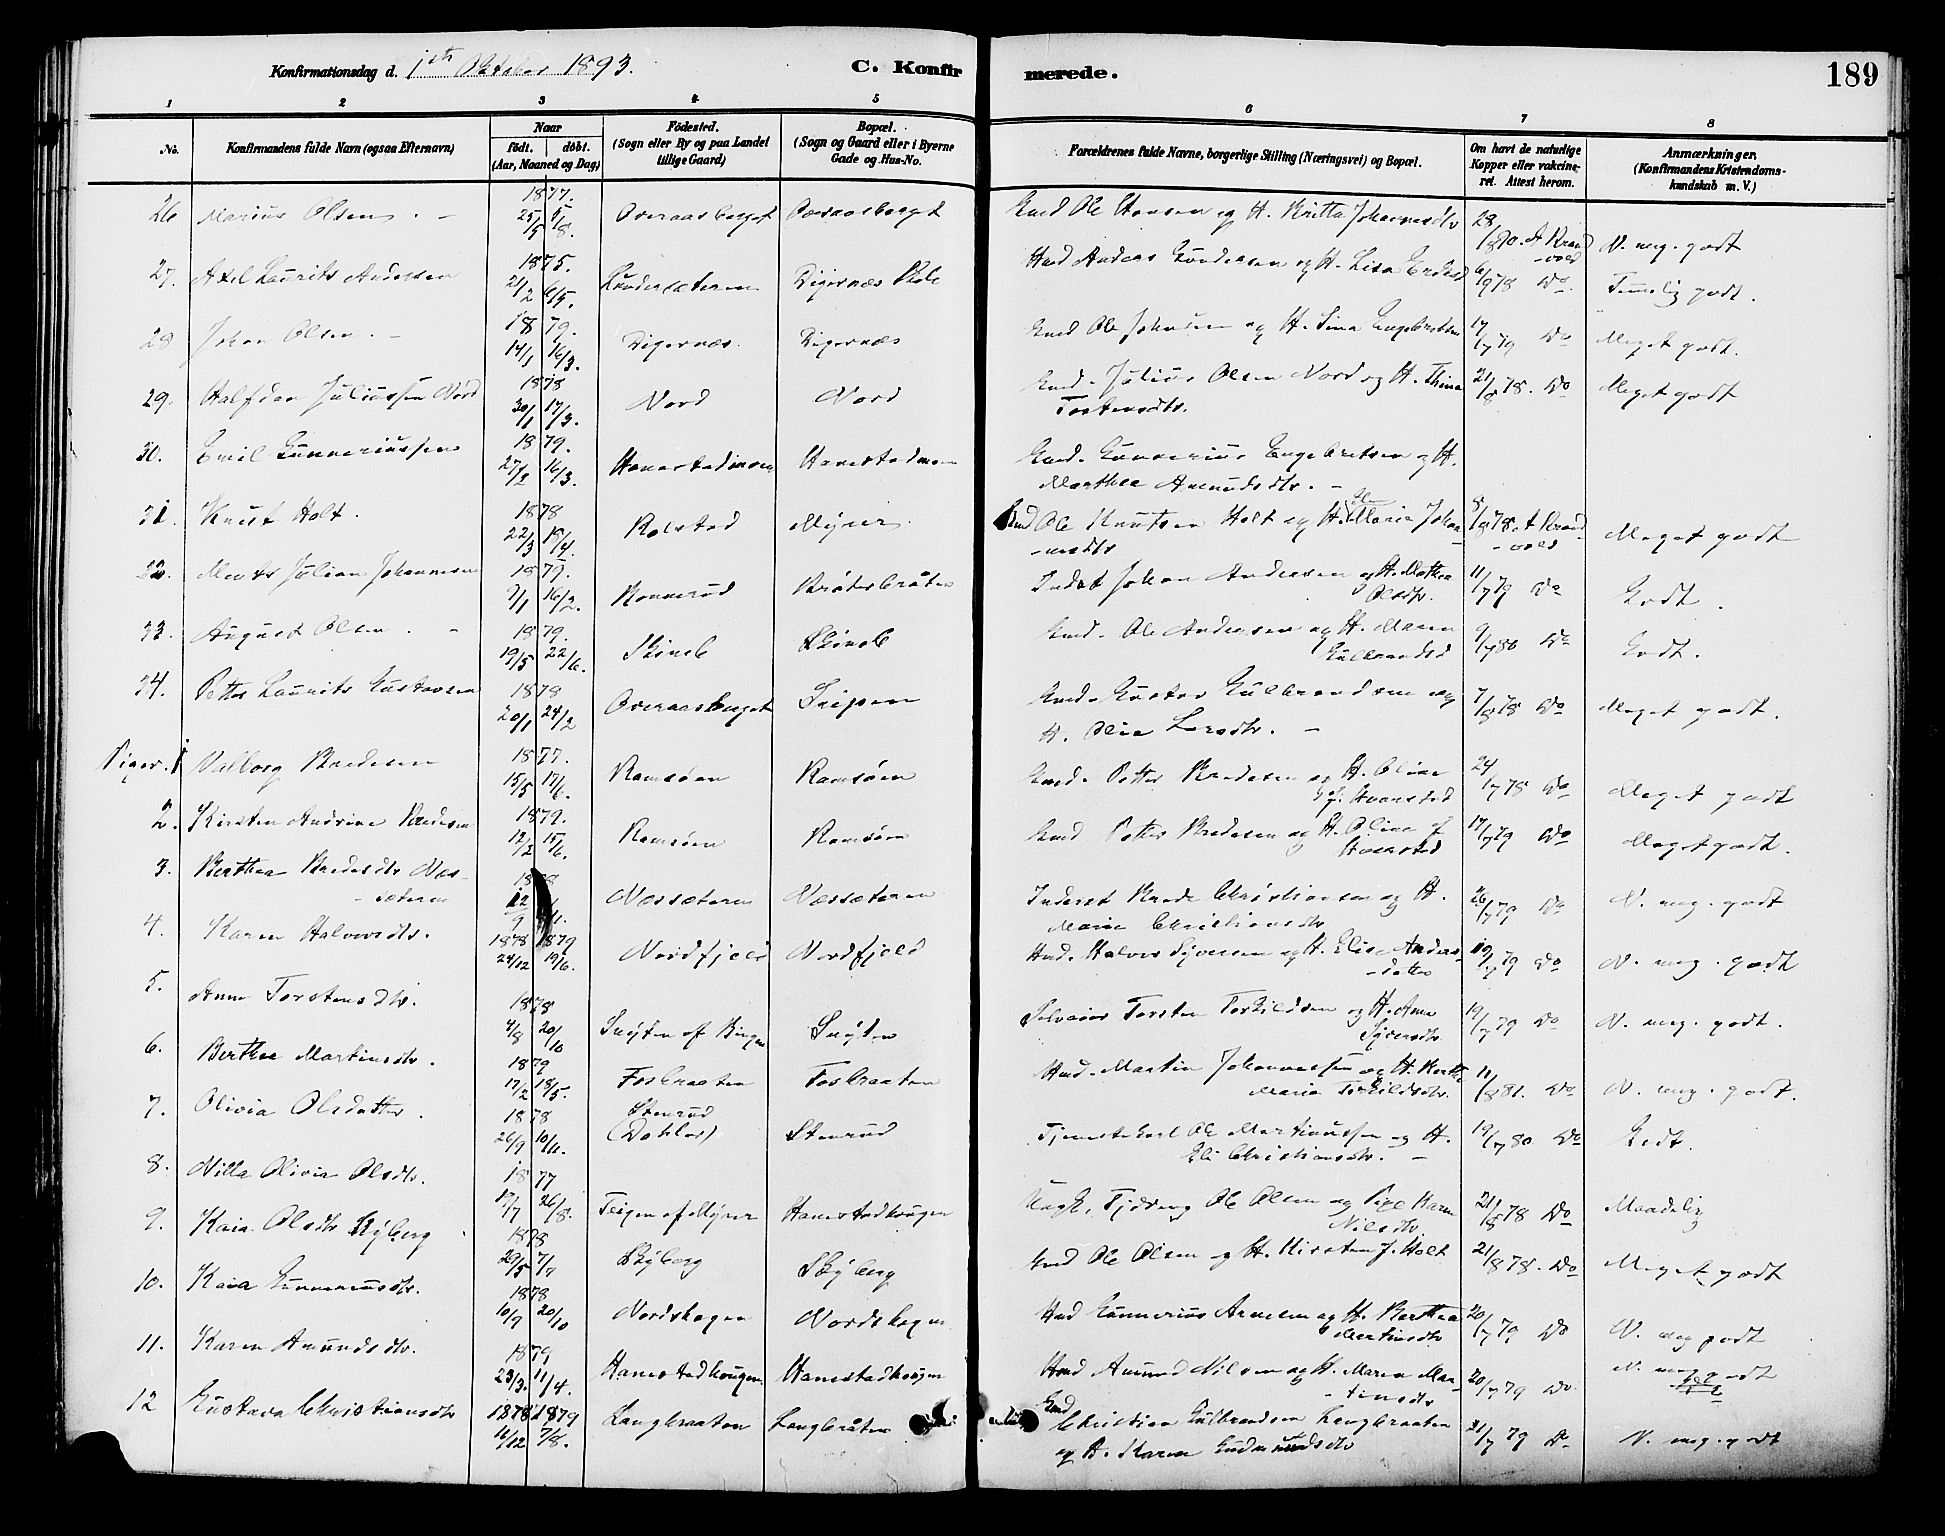 Konfirmationsdag d. 1ste Oktober 1893. C. Konfirmerede. 189
1 2 3 4 5 6 7 8
No. Konfirmandens fulde Navn (ogsaa Efternavn) Naar født. døbt. (Aar, Maaned og Dag) Födested. (Sogn eller By og paa Landet tillige Gaard) Bopæl. (Sogn og Gaard eller i Byerne Gade og Hus-No. Forældrenes fulde Navne, borgerlige Stilling (Næringsvei) og Bopæl. Om havt de naturlige Kopper eller vakcineret. Attest herom. Anmærkninger. (Konfirmandens Kristendomskundskab m. V.)
26 Marius Olsen. 1877. 25/5 5/8. Overaasberget Overaasberget Gmd Ole Hansen og H. Britta Johannesdtr 28/8 90. A Brandvold N. meg. godt
27. Axel Laurits Andersen 1875. 21/2 6/5. Digernæs Skole Hmd Anders Gundersen og H. Lisa 6/9 78 Do. Temmelig godt.
28 Johan Olsen. 1879. 14/1 16/3. Digernæs. Digernæs Gmd Ole Johnsen og H. Lina Engebretsen 17/7 79 Do Meget godt.
29. Halfdan Juliussen Nord 1878 30/1 17/3. Nord Nord Gmd. Julius Olsen Nord og H. Thina Torstensdtr. 21/8 78. Do Meget godt
30. Emil Gunneriussen 1879. 27/2 16/3. Hanestadmoen Hanestadmoen Gmd. Gunnerius Engebretsen og H. Marthea Amundsdtr.
31. Knut Holt. 1878 22/3 18/4. Rolstad Myrer. Gmd Ole Knutsen Holt og H. Maria Johannesdtr 8/8 78. A Brandvold Meget godt
32. Julian Johannesen 1879. 7/1 16/2. Ronnerud Bråtebråten Inderst Johan Andersen og H. Mathea Olsdtr. 11/7 79 Do Godt.
33. August Olsen. 1879. 19/5 22/6. Skineb Skineb Gmd. Ole Andersen og H. Maren Gulbrandsd 9/7 80 Do Godt.
34. Petter Laurits Gustavsen 1878 20/1 24/2 Overaasberget Snipen Gmd. Gustav Gulbrandsen og H. Olia Larsdtr. 7/8 78 Do Meget godt.
Piger. 1 Valborg Bredesen 1877. 15/5 17/6. Ramsøen Ramsøen Gmd. Petter Bredesen og H. Oline af Haarstad 24/7 78 Do Meget godt
2. Kirsten Andrine Bredesen 1879. 12/2 15/6. Ramsøen Ramsøen Gmd Petter Bredesen og H. Oline af Haarstad 17/7 79 Do Meget godt.
3. Berthea Bredesdtr Næssæteren Næssæteren Næssæteren Inderst Brede Christiansen og H. Marie Christiansdtr 26/7 79 Do N. meg. godt
4. Karen Halvorsdtr. 1878 1879 24/12 19/6. Nordfjeld Nordfjeld Hmd. Halvor Syversen og H. Elise Andersdatter 19/7 79 Do N. meg. godt
5. Anne Torstensdtr. 1878 4/8 20/10 Snyten af Bingen Snyten Selveier Torsten Torkildsen og H. Anne Syversdtr. 19/7 79 Do N. meg. godt.
6. Berthea Martinsdtr. 1879 17/2 18/5. Fosbraaten Fosbraaten Hmd. Martin Johannessen og H. Berthe Maria Torkildsdtr. 11/8 81. Do N. meg. godt.
7. Olivia Olsdatter. 1878 26/9 10/11. Stenrud (Dahler) Stenrud Tjenestekarl Ole Martinussen og H. Eli Christiansdtr. 19/7 80 Do Godt.
8. Nilla Olivia Olsdtr. 1877 19/7 26/8. Teigen af Myrer Hanestadhaugen Ungk. Tjdreng Ole Olsen og Pige Karen Nilsdtr. 21/8 78 Do Maadelig
9. Kaia Olsdtr Skyberg 1878 29/5 7/7 Skyberg Skyberg Gmd Ole Olsen og H. Kirsten J. Holt 21/8 78. Do Meget godt
10. Kaia Gunneriusdtr. 1878 10/9 20/10 Nordskogen Nordskogen Hmd Gunnerius Arnesen og H. Berthea Martinsdtr 20/7 79 Do N. meg godt
11. Karen Amundsdtr. 1879 23/3. 11/4. Hanestadhaugen. Hanestadhaugen Hmd Amund Nilsen og H. Maren Martinsdtr 20/7 79 Do. N. meg godt
12 Gustava Christiansdtr 1878 1879 16/12 7/8. Langbraaten Langbråten Gmd Christian Gulbrandsen Langbraaten og H. Karen Gudmundsdtr 21/7 79 Do N. meg. godt